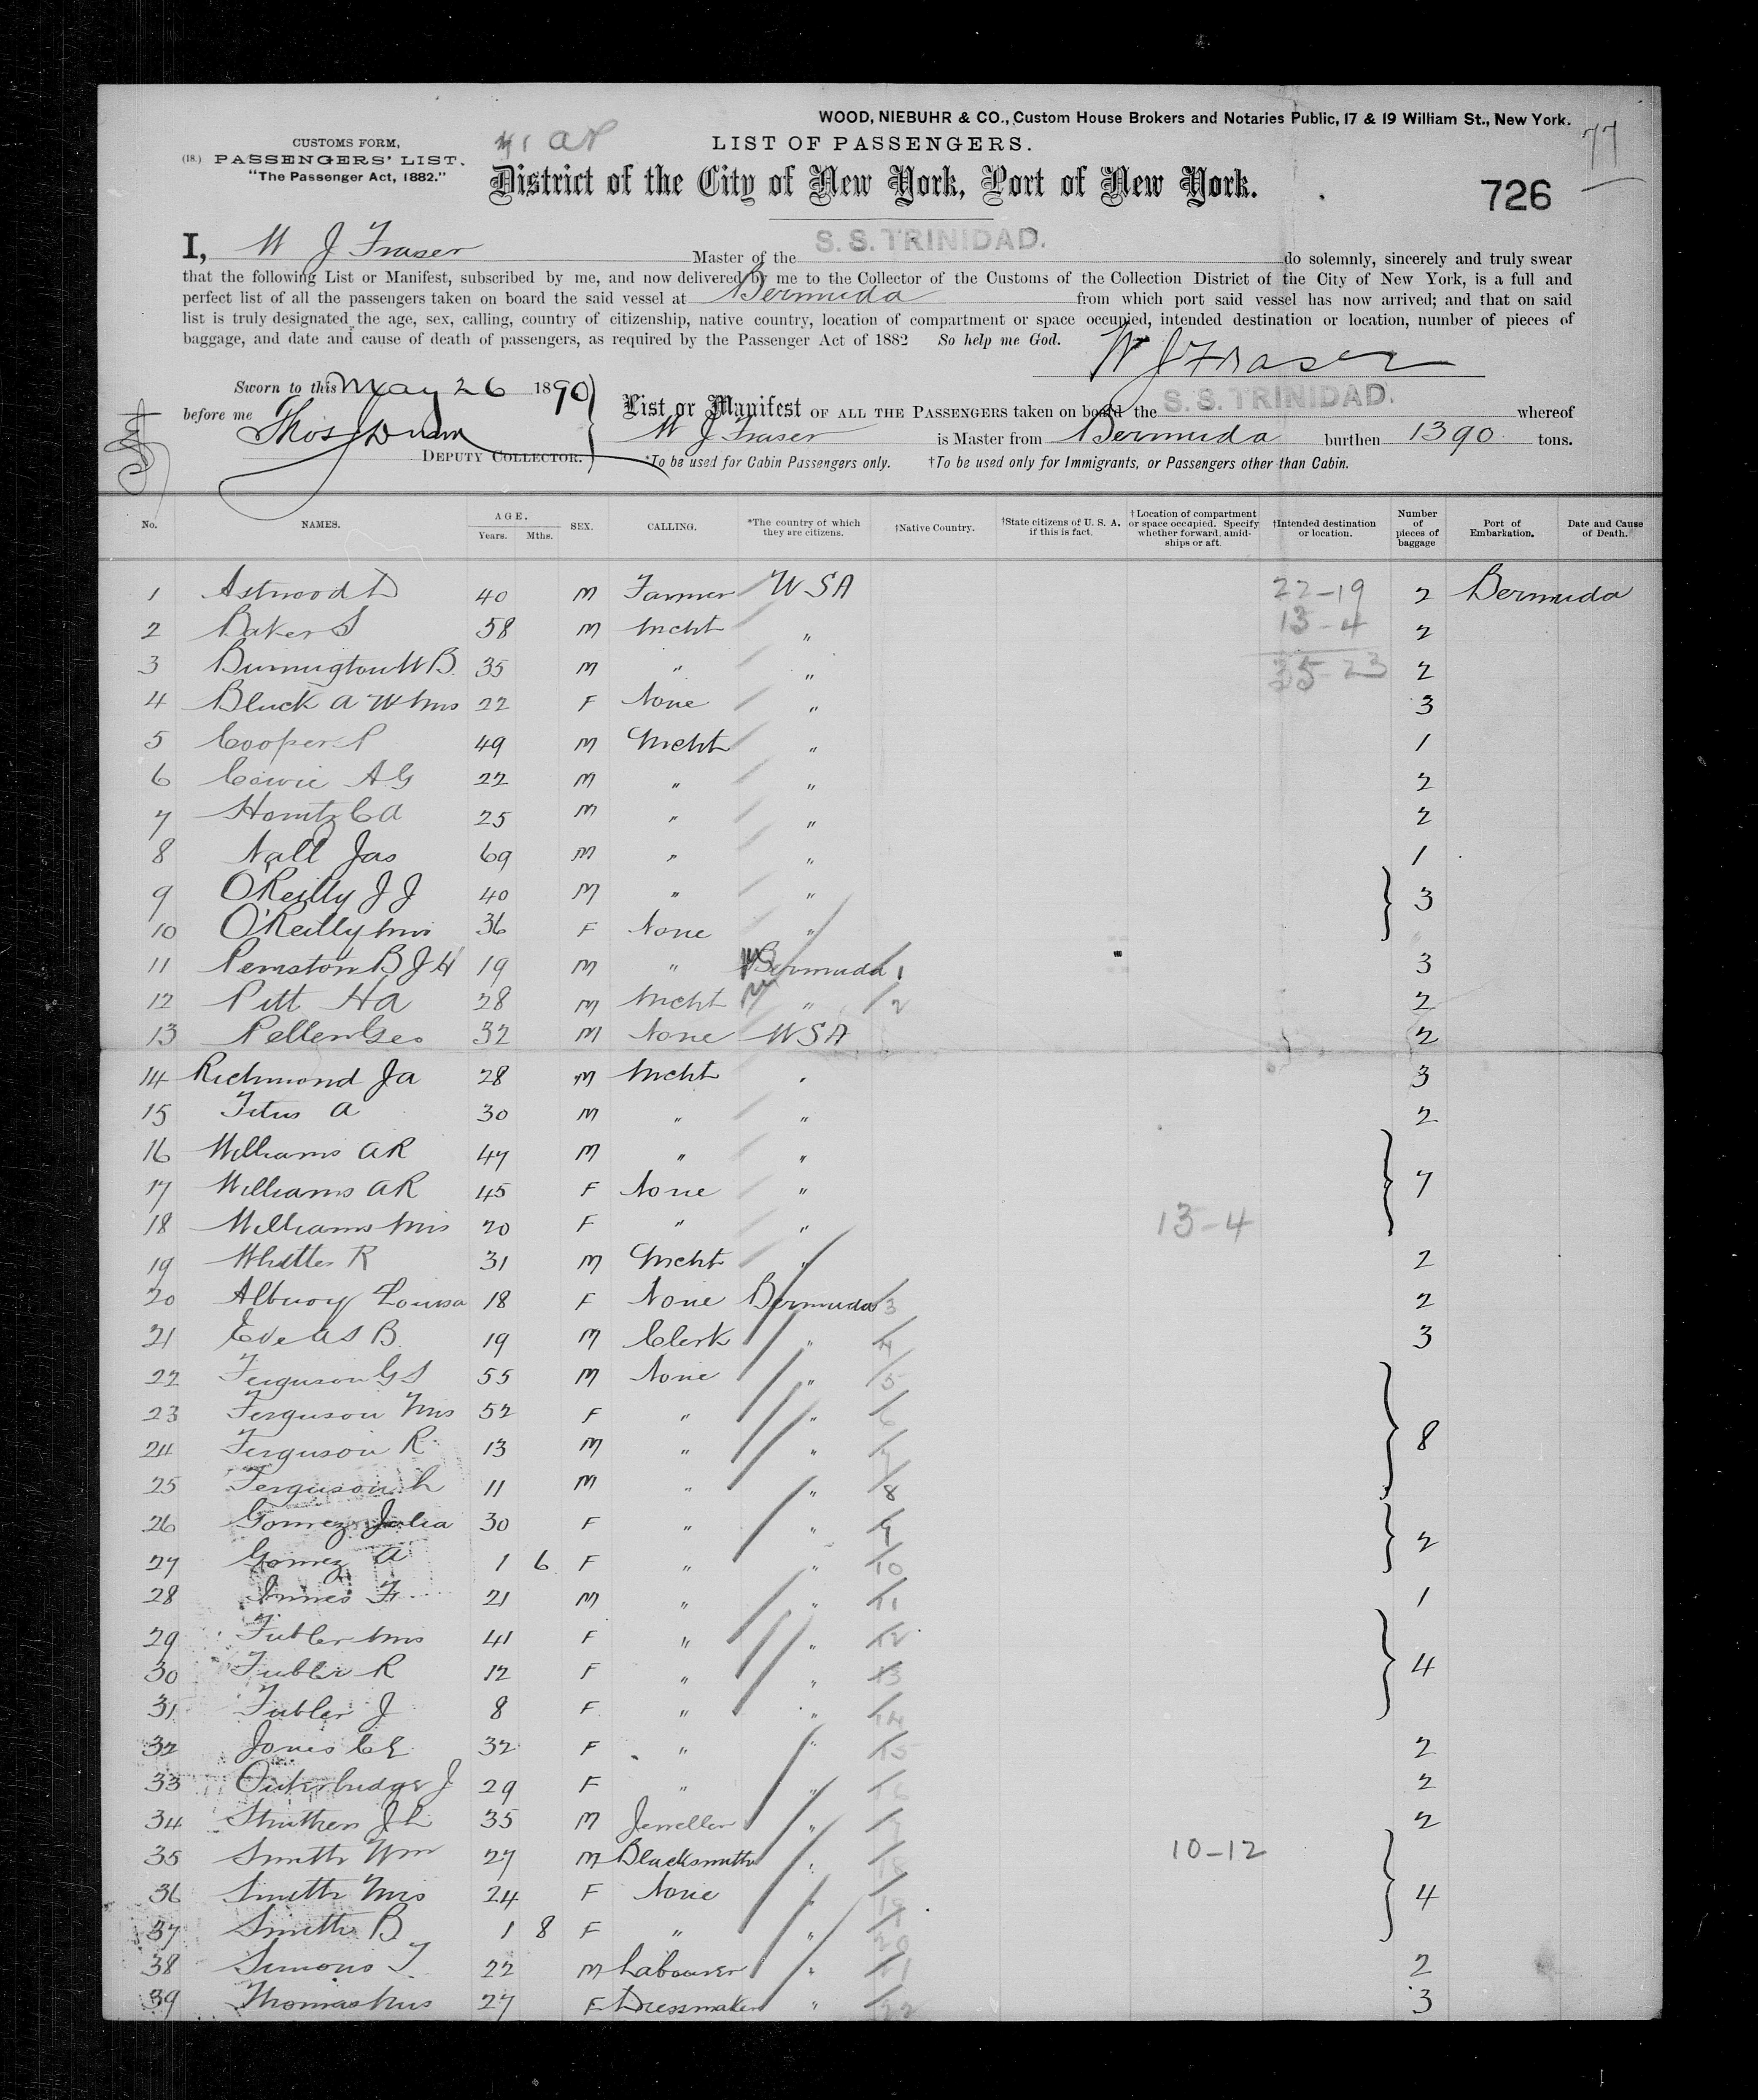 WOOD, NIEBUHR & CO., Custom House Brokers and Notaries Public, 17 & 19 William St., New York.
77
CUSTOMS FORM,
(18.) PASSENGERS' LIST.
"The Passenger Act, 1882."
LIST OF PASSENGERS.
District of the City of New York, Port of New York.
726
I, W J Fraser Master of the S. S. TRINIDAD. do solemnly, sincerely and truly swear
that the following List or Manifest, subscribed by me, and now delivered by me to the Collector of the Customs of the Collection District of the City of New York, is a full and
perfect list of all the passengers taken on board the said vessel at Bermuda from which port said vessel has now arrived; and that on said
list is truly designated the age, sex, calling, country of citizenship, native country, location of compartment or space occupied, intended destination or location, number of pieces of
baggage, and date and cause of death of passengers, as required by the Passenger Act of 1882 So help me God.
W J Fraser
Sworn to this May 26 1890
before me Thos J Dunn
DEPUTY COLLECTOR.
List or Manifest OF ALL THE PASSENGERS taken on board the S. S. TRINIDAD. whereof
W J Fraser is Master from Bermuda burthen 1390 tons.
*To be used for Cabin Passengers only. †To be used only for Immigrants, or Passengers other than Cabin.
No. NAMES. AGE. Years. Mths. SEX. CALLING. *The country of which they are citizens. †Native Country. †State citizens of U. S. A. if this is fact. †Location of compartment or space occupied. Specify whether forward, amidships or aft. †Intended destination or location. Number of pieces of baggage Port of Embarkation. Date and Cause of Death.
1 Astwood D 40 M Farmer USA 22-19 2 Bermuda
2 Baker S 58 M Mcht " 13-4 2
3 W B 35 M " " 35-23 2
4 Bluck A W Mrs 22 F None " 3
5 Cooper P 49 M Mcht " 1
6 Cowie A G 22 M " " 2
7 C A 25 M " " 2
8 Nall Jas 69 M " " 1
9 O'Reilly J J 40 M " " 3
10 O'Reilly Mrs 36 F None "
11 Penistón B J H 19 M " Bermuda 1 3
12 Pitt H A 28 M Mcht " 2 2
13 Pellew Geo 32 M None USA 2
14 Richmond J A 28 M Mcht " 3
15 Titus A 30 M " " 2
16 Williams A R 47 M " " 7
17 Williams A R 45 F None "
18 Williams Miss 20 F " " 13-4
19 R 31 M Mcht " 2
20 Albuoy Louisa 18 F None Bermuda 3 2
21 Eve A S B 19 M Clerk " 4 3
22 Ferguson G S 55 M None " 5 8
23 Ferguson Mrs 52 F " " 6
24 Ferguson R 13 M " " 7
25 Ferguson L 11 M " " 8
26 Gomez Julia 30 F " " 9 2
27 Gomez A 1 6 F " " 10
28 Innes F 21 M " " 11 1
29 Tubler Mrs 41 F " " 12 4
30 Tubler R 12 F " " 13
31 Tubler J 8 F " " 14
32 Jones C E 32 F " " 15 2
33 Outerbridge J 29 F " " 16 2
34 Struthers J L 35 M Jeweller " 2
35 Smith Wm 27 M Blacksmith " 18 10-12 4
36 Smith Mrs 24 F None " 19
37 Smith B 1 8 F " " 20
38 Simons T 22 M Labourer " 21 2
39 Thomas Mrs 27 F Dressmaker " 22 3